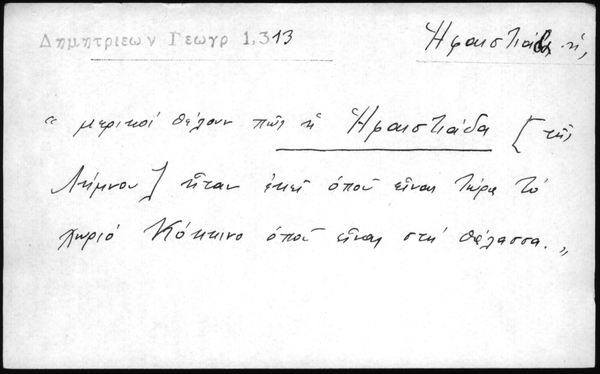 Δημητριεων Γεωγρ 1,313 Ἡφαιστιάδα, ἡ,
« μερικοί θέλουν πῶς ἡ Ἡφαιστιάδα [τῆς
Λήμνου] ἦταν ἐκεῖ ὁποῦ εἶναι τώρα τό
χωριό Κόκκινο ὁποῦ εἶναι στή θάλασσα. »